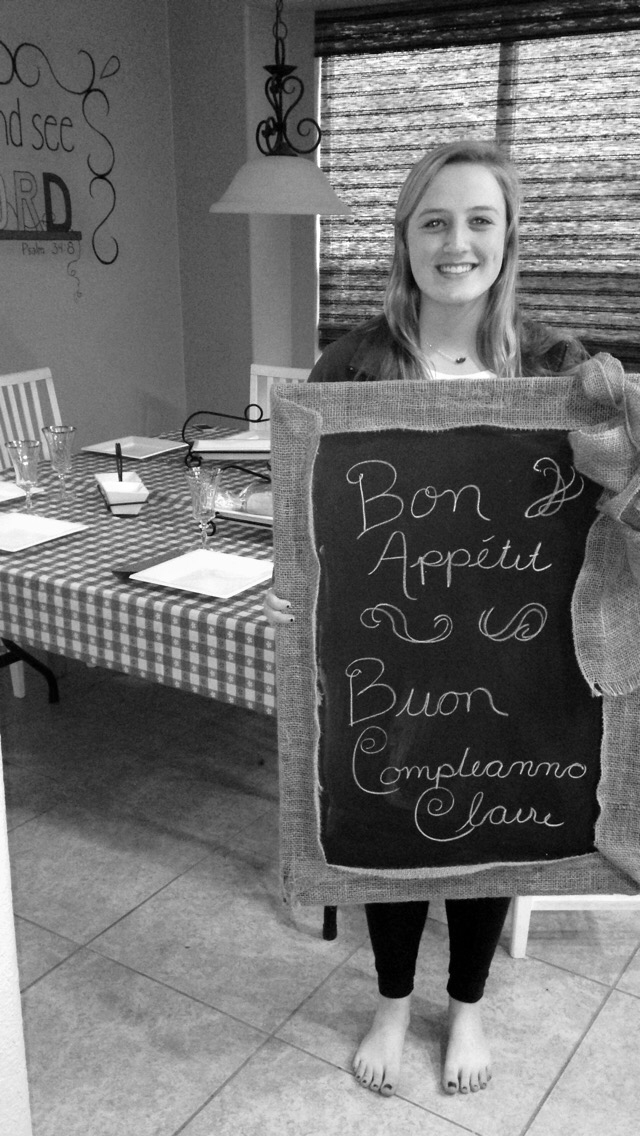 nd see
ORD
Psalm 34:8
Bon
Appétit
Buon
Compleanno
Claire